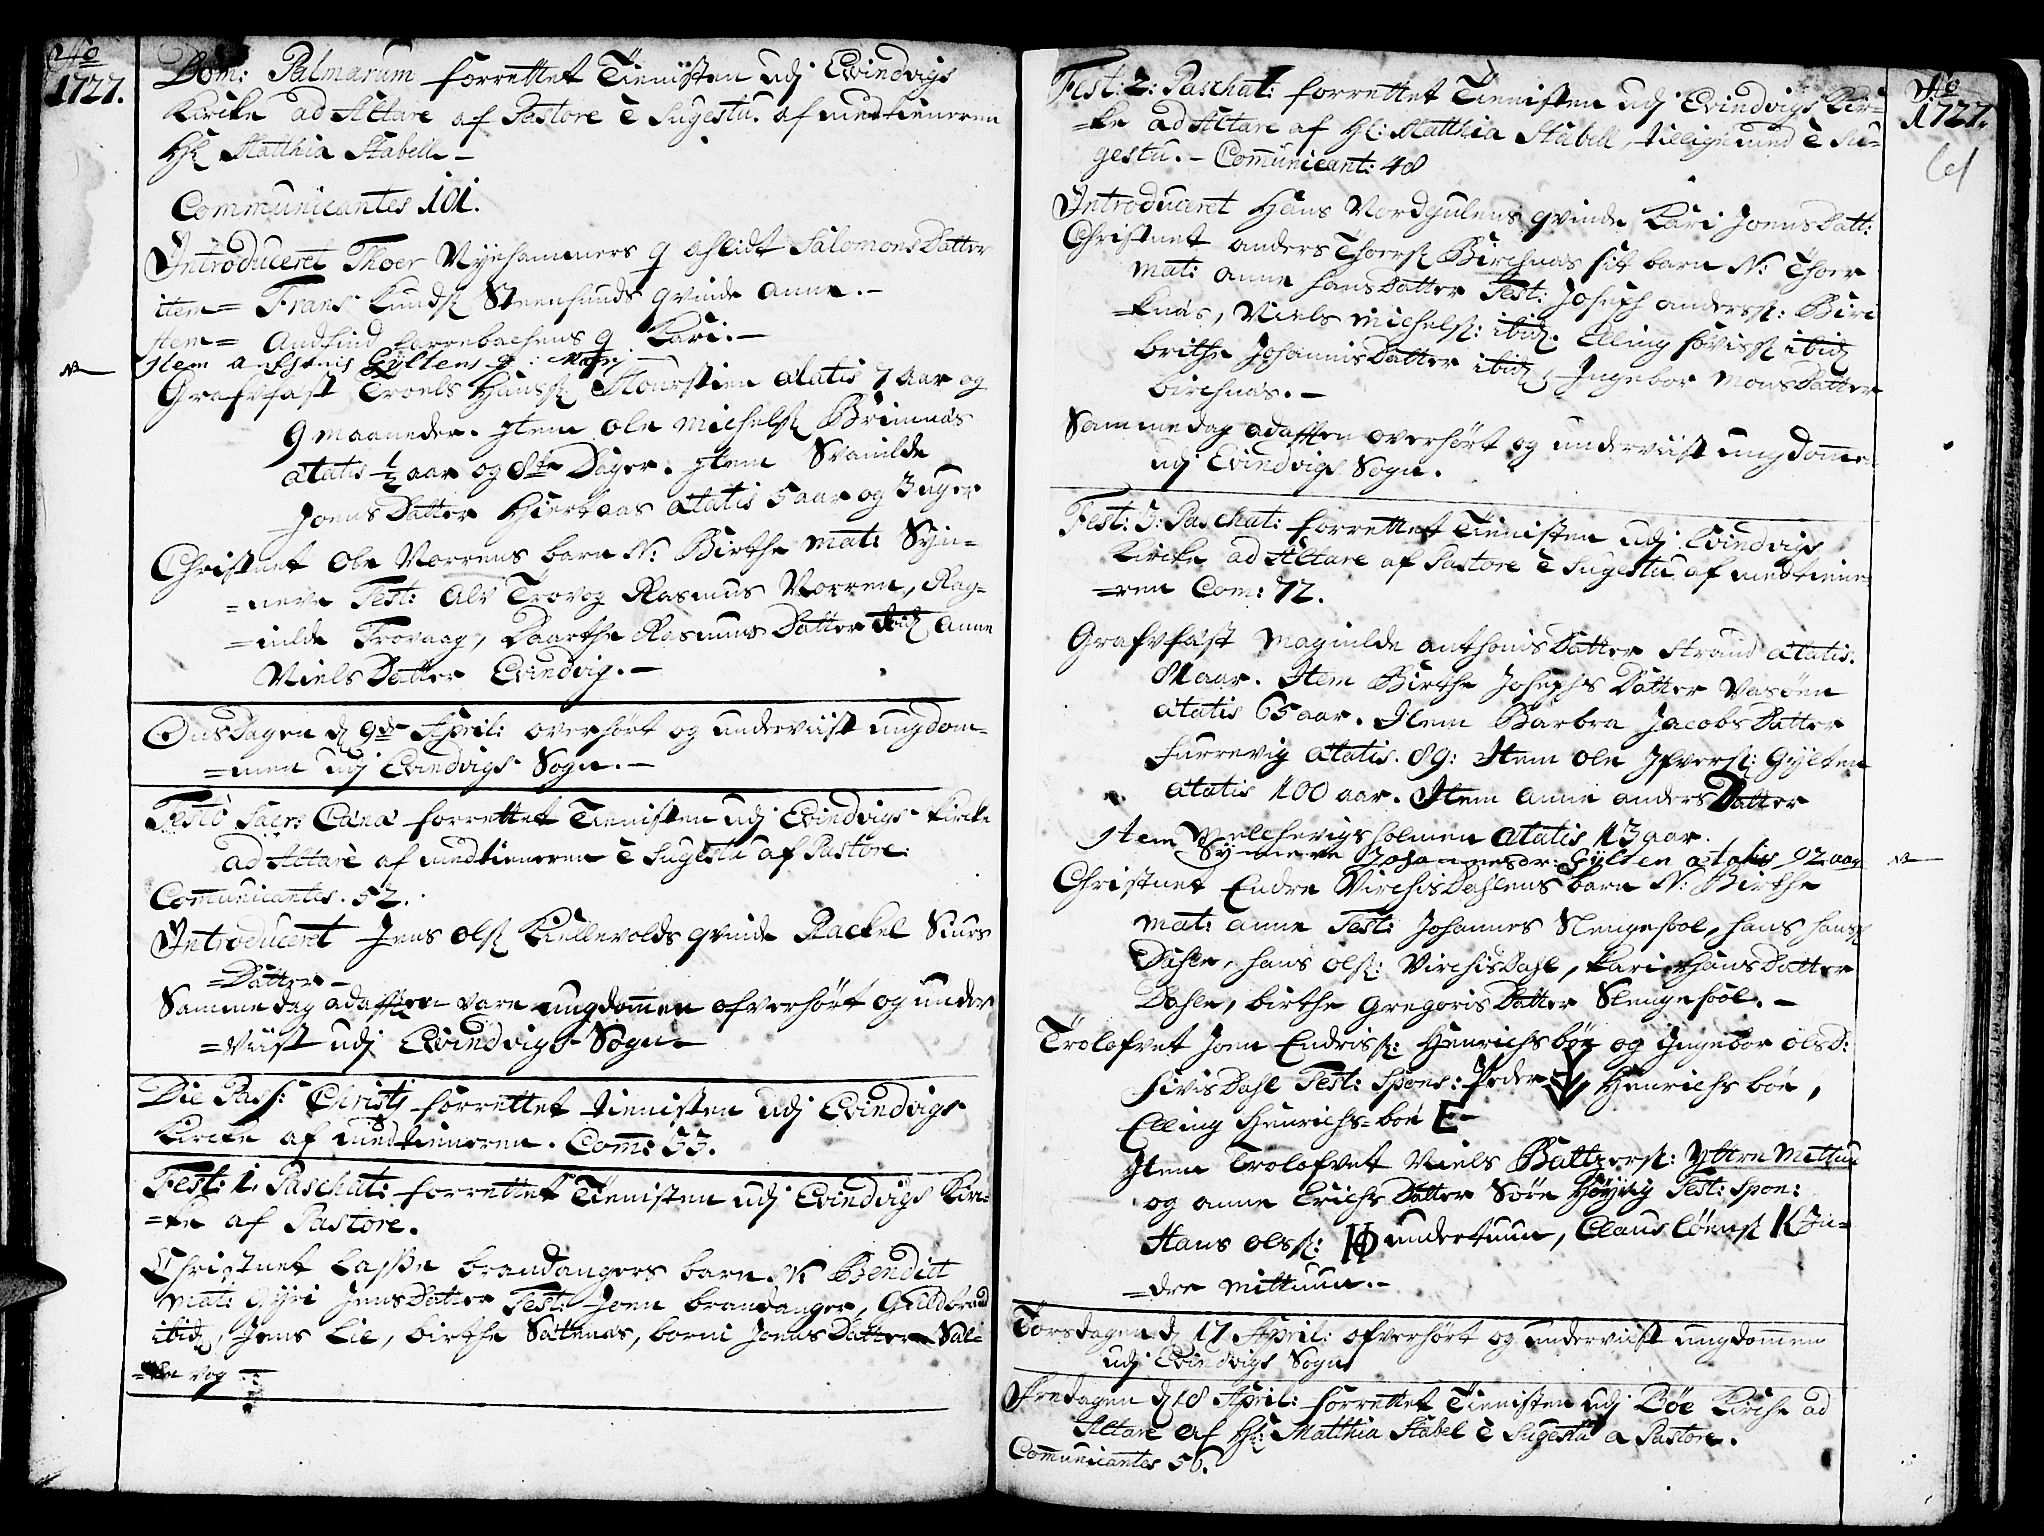 Ao
1727.
Dom: Palmarum forrettet Tienisten udj Evindvigs
Kircke ad Altare af Pastore è Sugestu af medtieneren
Hl Matthia Stabell –
Communicantes 101.
Introduceret Thoer Nyehammers q aslidt Salomons Datter
item = Frans Knuds Steensunds qvinde Anne. –
Item = Andfind q Kari. –
Item Anthonis Gyltens q: Mari –
Grafvfast Troels Hanss atatis 7 aar og
9 maaneder. Item Ole Michels Brimnæs
atatis ½ aar og 8te Dager. Item Svanilde
Joens Datter Hiertaas atatis 5 aar og 3 uger
Christnet Ole Norrens barn N: Birthe mat: Syn=
=neve Test: Alv Trovog Rasmus Norren, Rag=
=nilde Trovaag, Daarthe Rasmus Datter ibid Anne
Niels Datter Evindvig. –
Onsdagen d 9de April: overhört og underviist ungdom=
=men udj Evindvigs Sogn. –
Festo Sacr: Cænæ forrettet Tienisten udj Evindvigs Kircke
ad Altare af medtieneren è Sugestu af Pastore:
Communicantes. 52.
Introduceret Jens Ols Kiellevolds qvinde Rackel Siurs
=Datter –
Samme dag adafften vare ungdommen ofverhört og under
=viist udj Evindvigs Sogn –
Die Pass: Christj forrettet tienisten udj Evindvigs
Kircke af medtieneren. Com: 53.
Fest: 1. Paschat: forrettet Tienisten udj Evindvigs Kirc=
=ke af Pastore.
Christnet Lasse brandangers barn N: Bendict
mat: Gyri Jens Datter Test: Joen brandanger, Guldbrand
ibid, Jens Lie, birthe Sættenæs, borni Jonas Datter Sal=
vog
Ao
1727.
61
Fest: 2: Paschat: forrettet Tienisten udj Evindvigs Kirc=
=ke ad Altare af Hl: Matthia Stabell, tilligemed è Su=
gestu. – Communicant: 48
Introduceret Hans Nordgulens qvinde Kari Joens Datt:
Christnet Anders Thoers Birchnæs sit barn N: Thoer
mat: Anne Hans Datter Test: Joseph Anders: Birc
knæs, Niels Michels: ibid. Elling ibid
brithe Johannis Datter ibid, Ingebor Mons Datter
birchnæs. –
Samme dag adafften overhört og underviist ungdommen
udj Evindvigs Sogn.
Fest: 3: Paschat: forrettet Tienisten udj Evindvigs
Kircke ad Altare af Pastore è Sugestu af medtiene=
=ren Com: 72.
Grafvfast Magnilde Anthonis Datter Strand atatis.
81 aar. Item Birthe Josephs Datter Vasöen
atatis 65 aar. Item Barbra Jacobs Datter
Furrevig atatis. 89: Item Ole Ifvers: Gylten
atatis 100 aar. Item Anne Anders Datter
holmen atatis 13 aar.
Item Synneve Johannesdr: Gylten atatis 92 aar
Christnet Endre VirchisDahlens barn N: Birthe
mat: Anne Test: Johannes Slengesool, Hans Hans
Dahle, Hans Ols: VirchisDahl, Kari Hans Datter
Dahle, birthe Gregoris Datter Slengesool. –
Trolofvet Joen Endris: Henrichsböe og Ingebor Ols D:
SivisDahl Test: Spons: Peder Henrichs böe,
Elling Henrichs=böe E –
Item Trolofvet Niels Baltzers: Yttre Mittun
og Anne Erichs Datter Test: Spon:
Hans Ols: HO undertuun, Claus K In=
=dre Mittuun. –
Torsdagen d 17 April: ofverhört og underviist ungdommen
udj Evindvigs Sogn
Fredagen d 18 April: forrettet Tienisten udj Böe Kircke ad
Altare af Hl: Matthia Stabel è Sugestu a Pastore.
Communicantes 56.